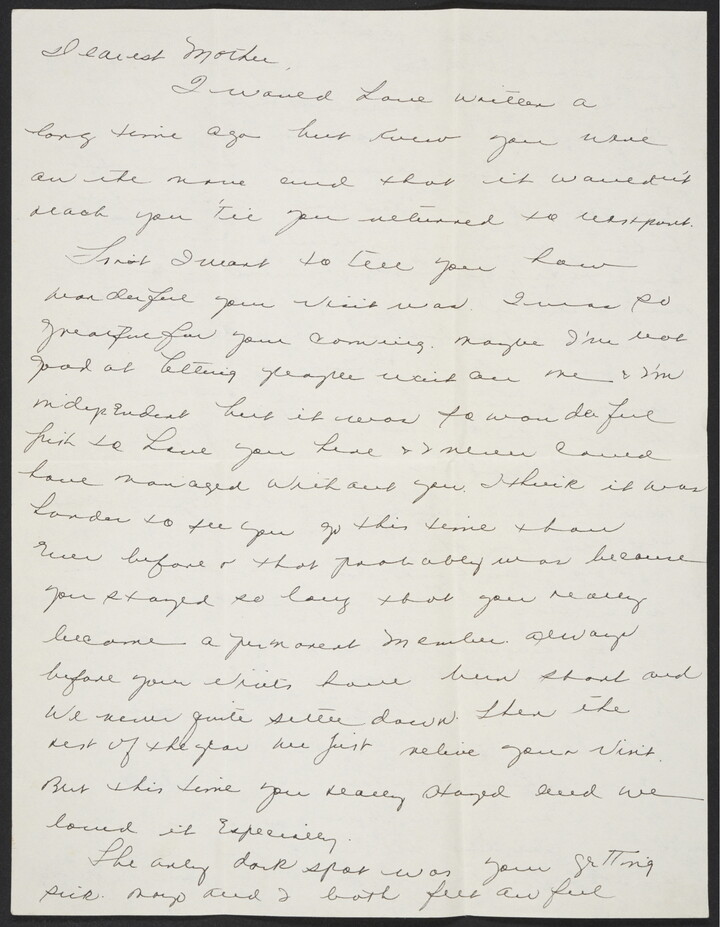 Dearest Mother,
I would have written a
long time ago but knew you were
on the move and that it wouldn't
reach you 'til you returned to Westport.
First I want to tell you how
wonderful your visit was. I was so
grateful for your coming. Maybe I'm not
good at letting people wait on me & I'm
independent but it was so wonderful
just to have you here & I never could
have managed without you. I think it was
harder to see you go this time than
ever before & that probably was because
you stayed so long that you really
became a permanent member. Always
before your visits have been short and
we never quite settle down. Then the
rest of the year we just relive your visit.
But this time you really stayed and we
loved it especially.
The only dark spot was your getting
sick. and I both felt awful